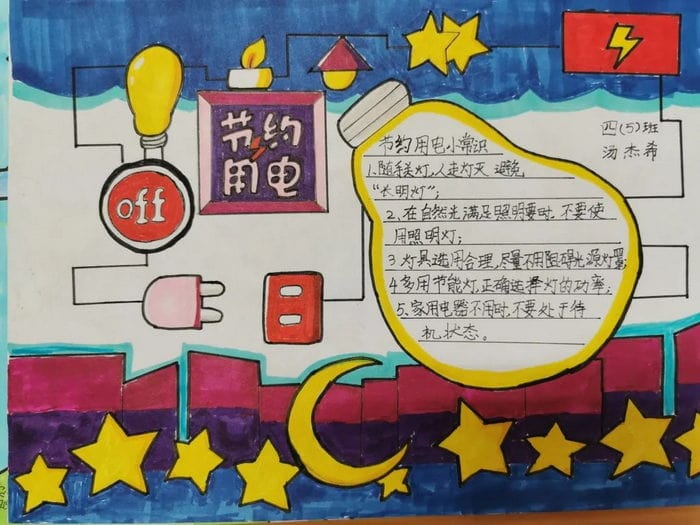 节约
用电
off
四(5)班
汤杰希
节约用电小常识
1.随手关灯,人走灯灭 避免
“长明灯”;
2.在自然光满足照明要时,不要使
用照明灯;
3.灯具选用合理,尽量不用阻碍光源灯罩;
4.多用节能灯,正确选择灯的功率;
5、家用电器不用时,不要处于待
机状态。